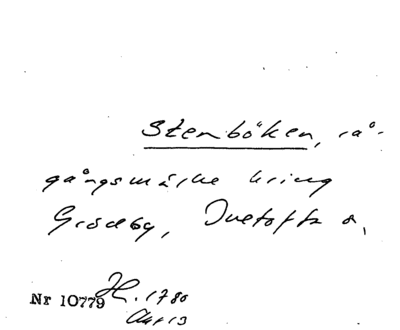 Stenböken, rå-
gångsmärke kring
Grödby, Duetofta o,
Nr 10779 H. 1780
Akt 13